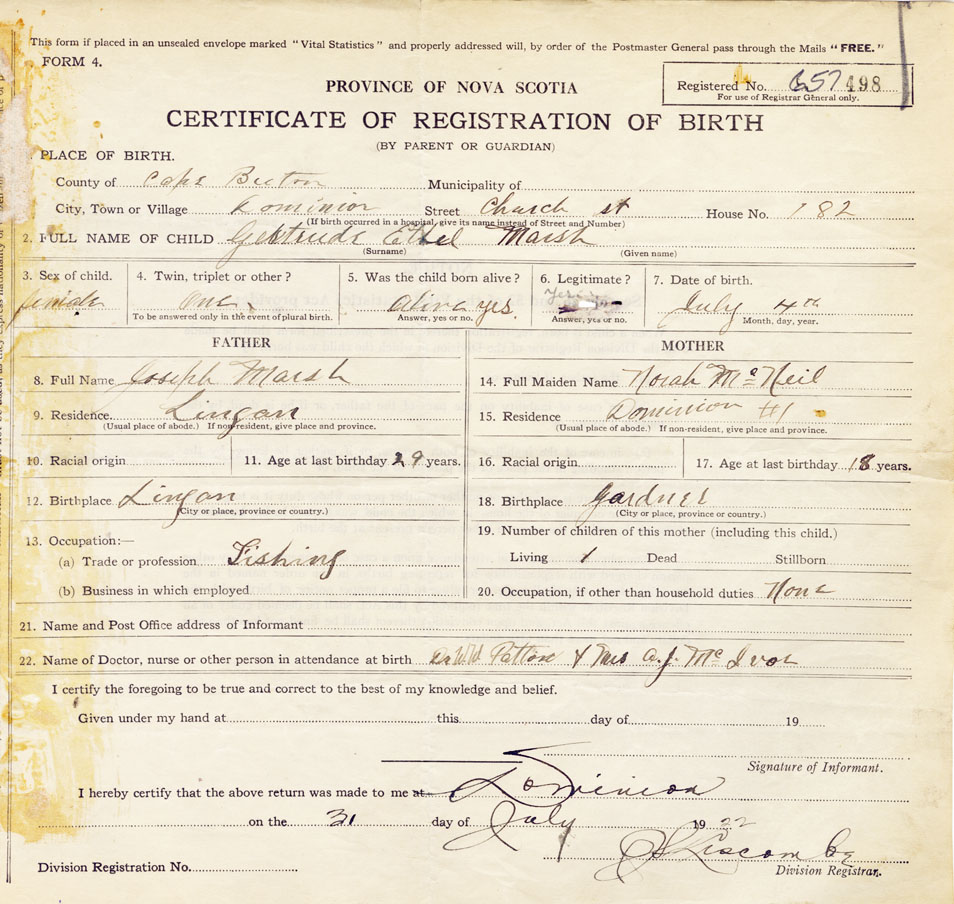 This form if placed in an unsealed envelope marked "Vital Statistics" and properly addressed will, by order of the Postmaster General pass through the Mails "FREE."
FORM 4.
PROVINCE OF NOVA SCOTIA
Registered No. 657 498
For use of Registrar General only.
CERTIFICATE OF REGISTRATION OF BIRTH
(BY PARENT OR GUARDIAN)
PLACE OF BIRTH.
County of Cape Breton Municipality of
City, Town or Village Dominion Street Church st House No. 182
(If birth occurred in a hospital, give its name instead of Street and Number)
2. FULL NAME OF CHILD Gertrude Ethel Marsh
(Surname) (Given name)
3. Sex of child. 4. Twin, triplet or other? 5. Was the child born alive? 6. Legitimate? 7. Date of birth.
female One Alive yes. Yes July 4th
To be answered only in the event of plural birth. Answer, yes or no. Answer, yes or no. Month, day, year.
FATHER MOTHER
8. Full Name Joseph Marsh 14. Full Maiden Name Norah McNeil
9. Residence. Lingan 15. Residence Dominion #1
(Usual place of abode.) If non-resident, give place and province. (Usual place of abode.) If non-resident, give place and province.
10. Racial origin 11. Age at last birthday 29 years. 16. Racial origin 17. Age at last birthday 18 years.
12. Birthplace Lingan 18. Birthplace Gardner
(City or place, province or country.) (City or place, province or country.)
13. Occupation:— 19. Number of children of this mother (including this child.)
(a) Trade or profession Fishing Living 1 Dead Stillborn
(b) Business in which employed 20. Occupation, if other than household duties None
21. Name and Post Office address of Informant
22. Name of Doctor, nurse or other person in attendance at birth Dr Patton & Mrs A. J. McIvor
I certify the foregoing to be true and correct to the best of my knowledge and belief.
Given under my hand at this day of 19
Signature of Informant.
I hereby certify that the above return was made to me at Dominion
on the 31 day of July 1922
Division Registration No. Division Registrar.